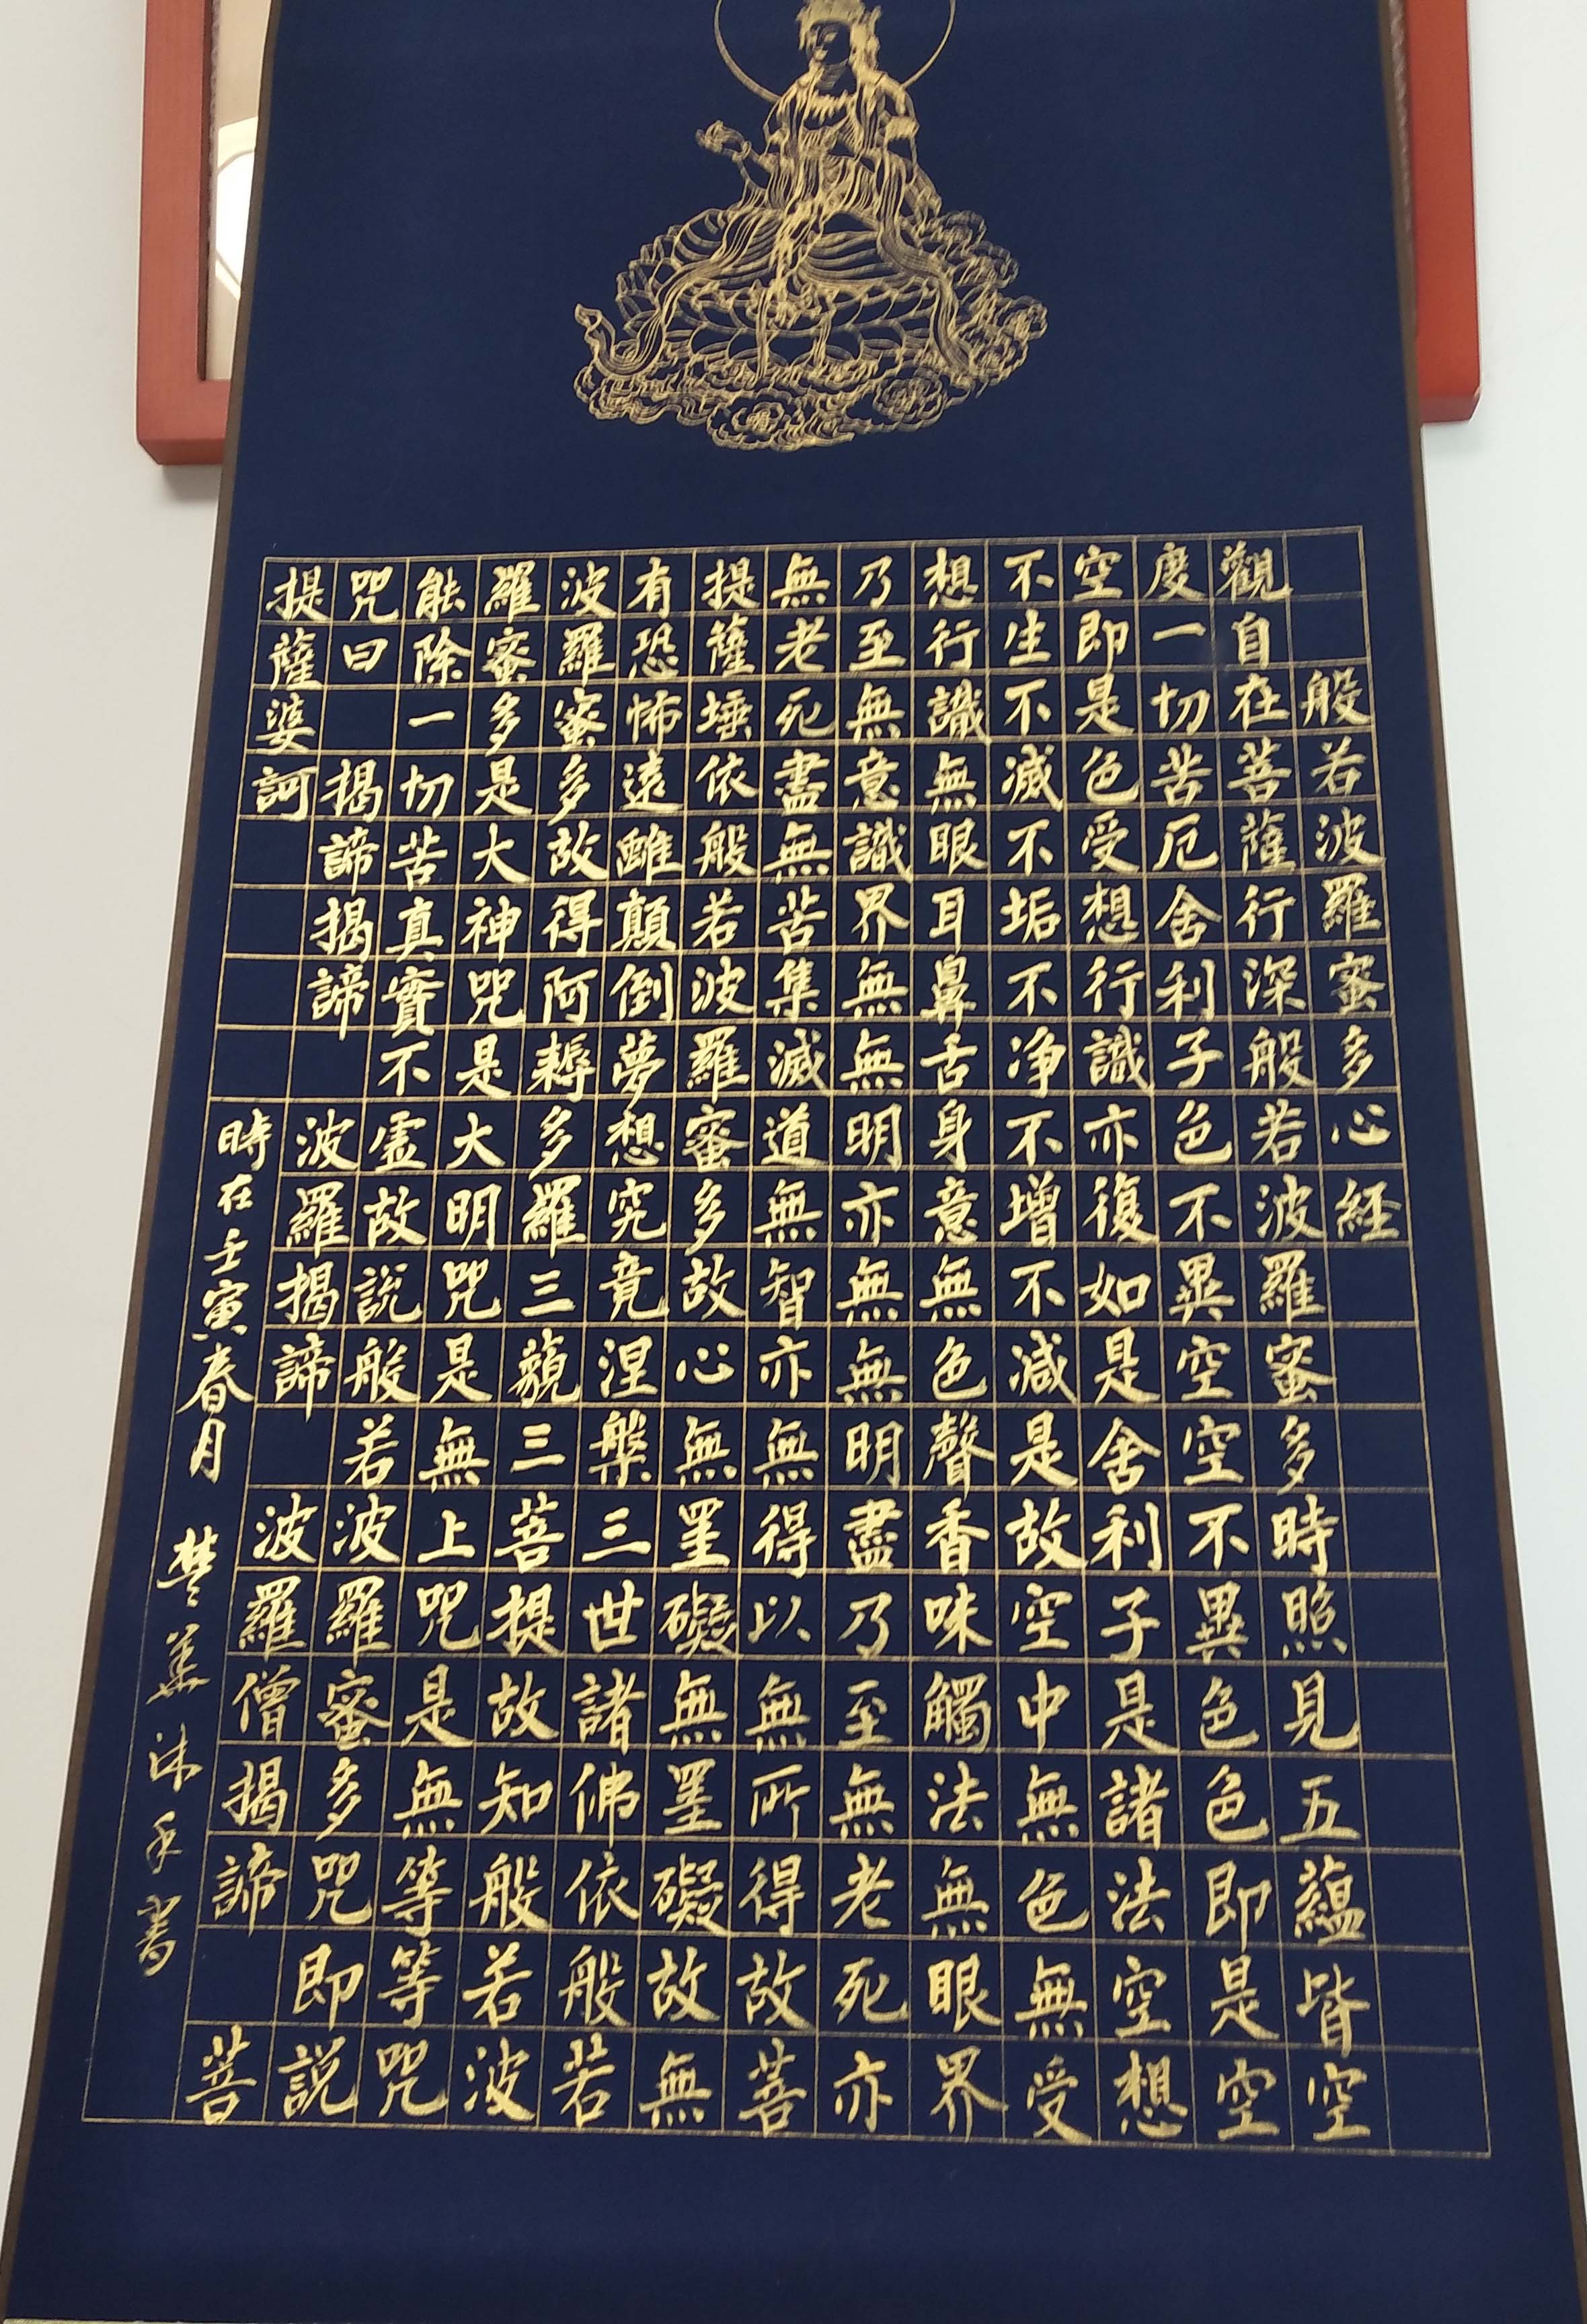 般若波羅蜜多心経
觀自在菩薩行深般若波羅蜜多時照見五蘊皆空
度一切苦厄舍利子色不異空空不異色色即是空
空即是色受想行識亦復如是舍利子是諸法空想
不生不滅不垢不净不增不減是故空中無色無受
想行識無眼耳鼻舌身意無色聲香味觸法無眼界
乃至無意識界無無明亦無無明盡乃至無老死亦
無老死盡無苦集滅道無智亦無得以無所得故菩
提薩埵依般若波羅蜜多故心無罣礙無罣礙故無
有恐怖遠離顛倒夢想究竟涅槃三世諸佛依般若
波羅蜜多故得阿耨多羅三藐三菩提故知般若波
羅蜜多是大神咒是大明咒是無上咒是無等等咒
能除一切苦真實不虛故説般若波羅蜜多咒即説
咒曰 揭諦揭諦 波羅揭諦 波羅僧揭諦 菩
提薩婆訶
時在壬寅春月 沐手書